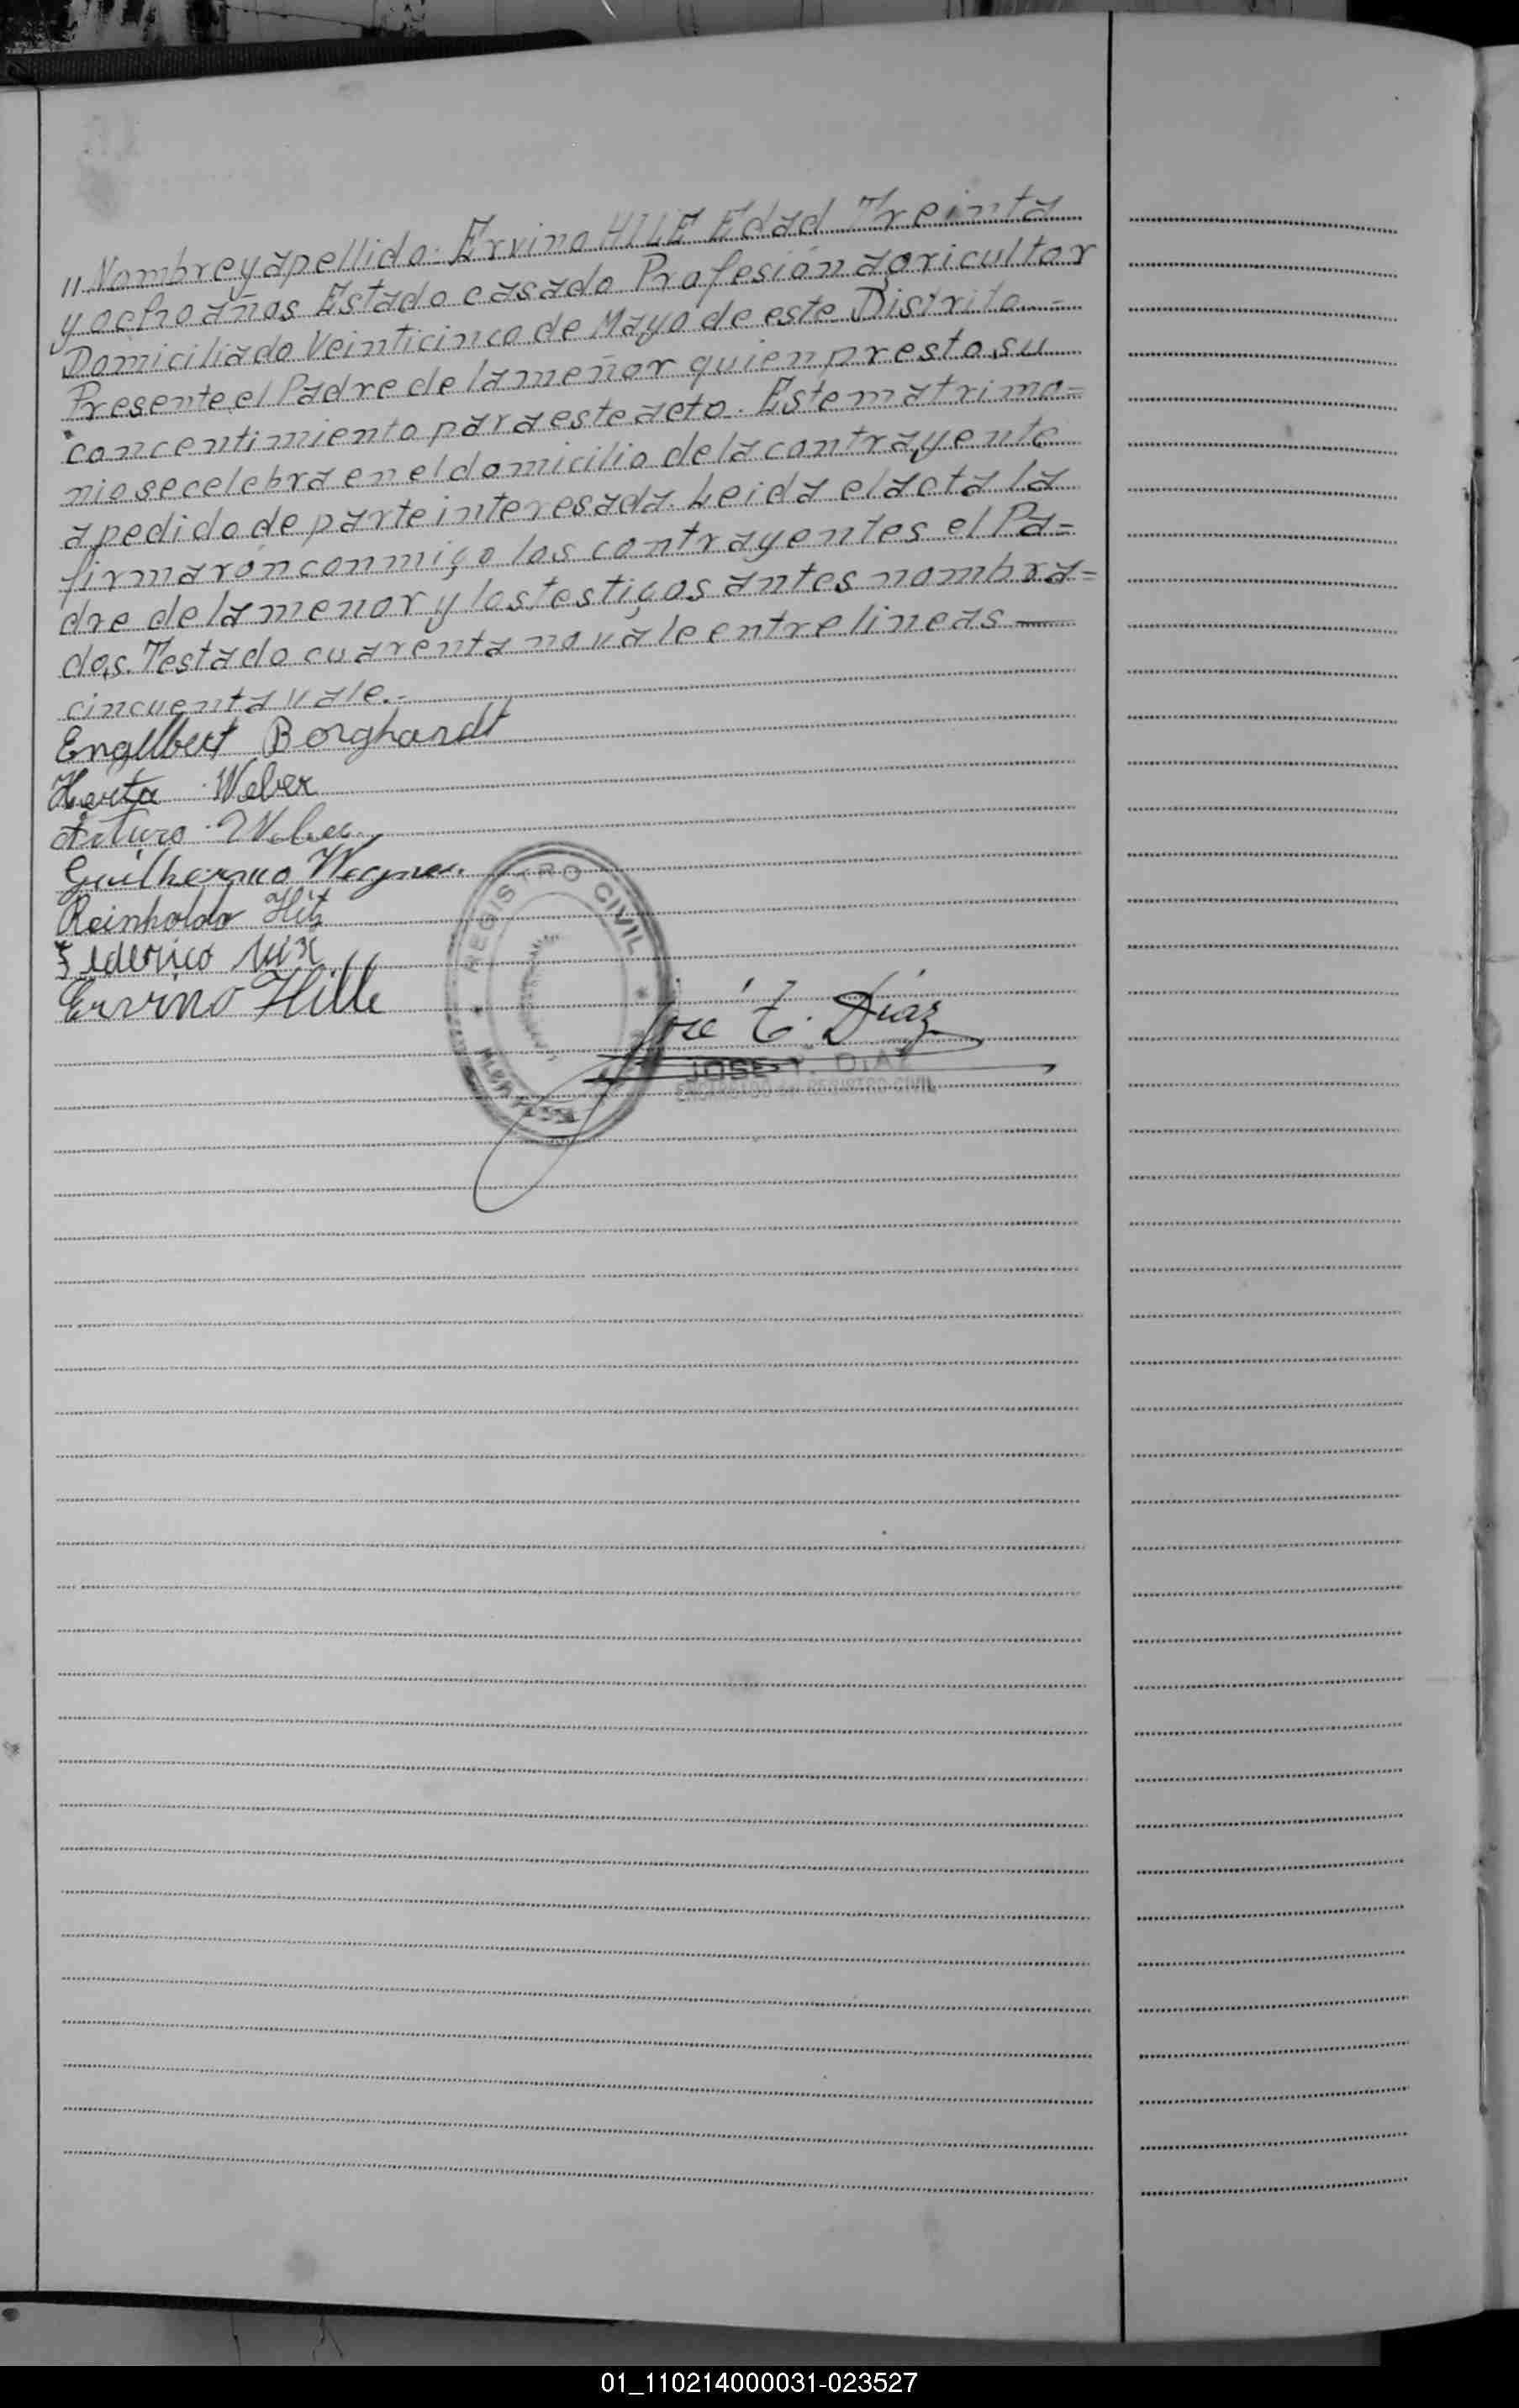 " Nombre y apellido: Ervino HILLE Edad Treinta
y ocho años Estado casado Profesión agricultor
Domiciliado Veinticinco de Mayo de este Distrito.=
Presente el Padre de la menor quien presto su
concentimiento para este acto. Este matrimo=
nio se celebra en el domicilio de la contrayente
a pedido de parte interesada. Leida el acta la
firmarón conmigo los contrayentes el Pa=
dre de la menor y los testigos antes nombra=
dos. Testado cuarenta no vale entre lineas —
cincuenta vale.-
Engelbert Borghardt
Herta Weber
Arturo Weber
Guilhermo Wegner.
Reinholdo Hitz
Federico
Ervino Hille
REGISTRO CIVIL
José T. Díaz
JOSE T. DIAZ
ENCARGADO REGISTRO CIVIL
01_110214000031-023527